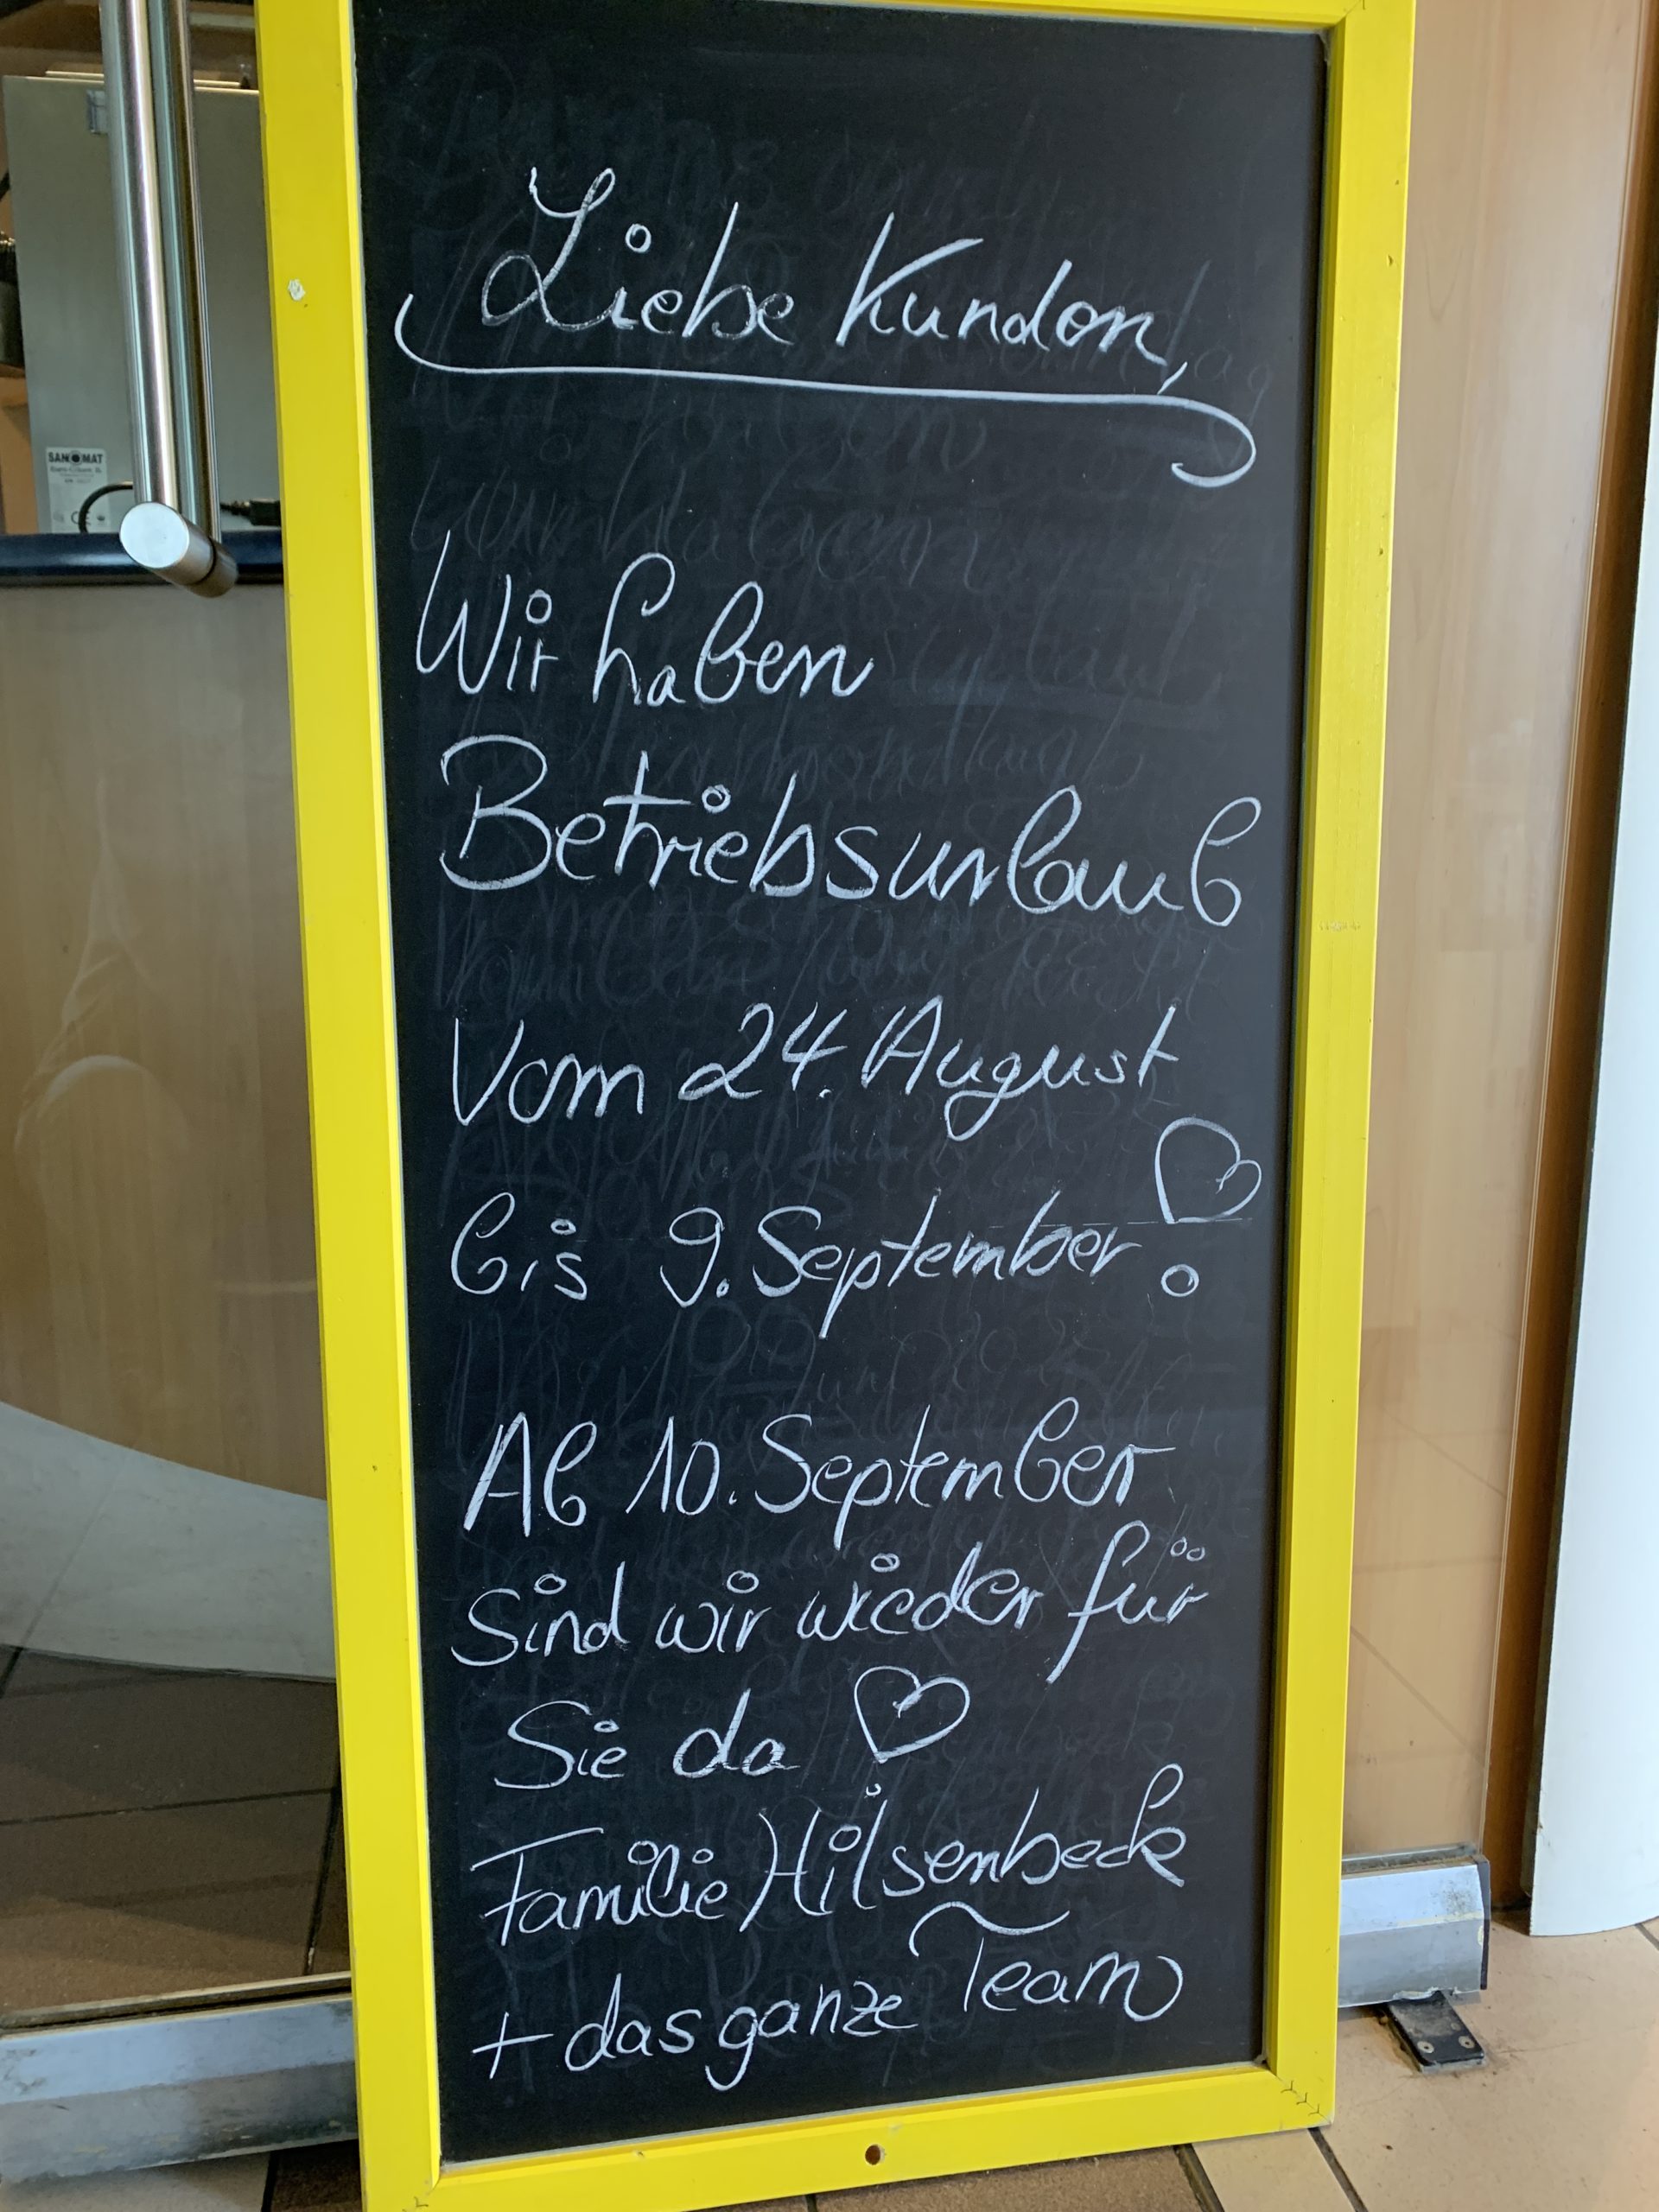 SANOMAT
Liebe Kunden,
Wir haben
Betriebsurlaub
Vom 24. August
bis 9. September
Ab 10. September
sind wir wieder für
Sie da
Familie Hilsenbeck
+ das ganze Team